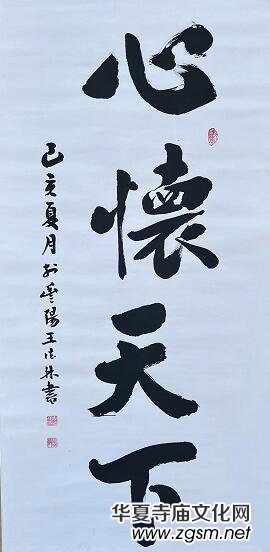 心懷天下
己亥夏月於
陽王
書
华夏寺庙文化网
www.zgsm.net